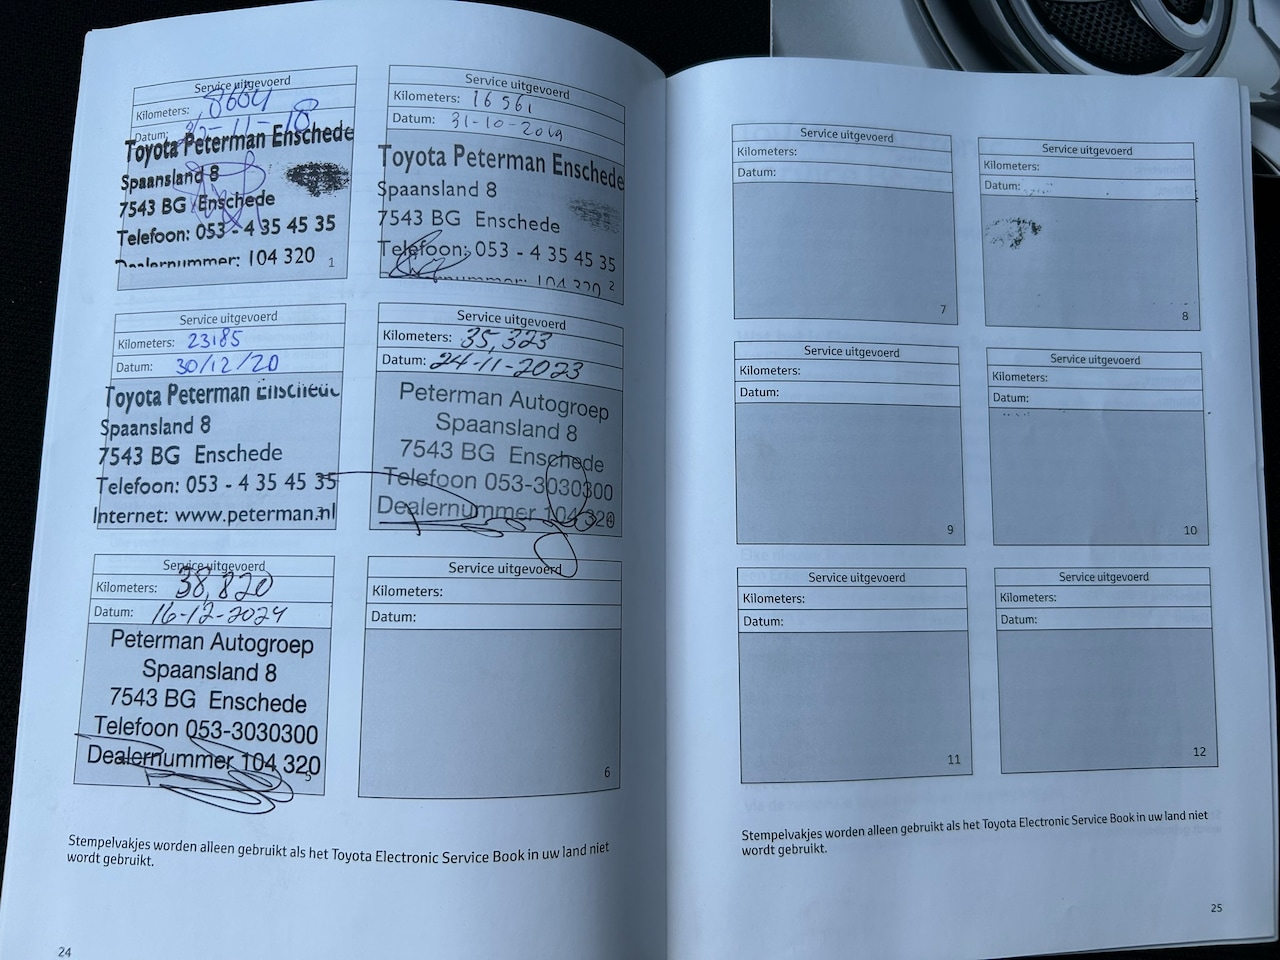 Service uitgevoerd
Kilometers: 8604
Datum: -11-18
Toyota Peterman Enschede
Spaansland 8
7543 BG Enschede
Telefoon: 053 - 4 35 45 35
Dealernummer: 104 320
1
Service uitgevoerd
Kilometers: 16 561
Datum: 31-10-2019
Toyota Peterman Enschede
Spaansland 8
7543 BG Enschede
Telefoon: 053 - 4 35 45 35
Dealernummer: 104 320
2
Service uitgevoerd
Kilometers: 23185
Datum: 30/12/20
Toyota Peterman Enschede
Spaansland 8
7543 BG Enschede
Telefoon: 053 - 4 35 45 35
Internet: www.peterman.nl
3
Service uitgevoerd
Kilometers: 35,323
Datum: 24-11-2023
Peterman Autogroep
Spaansland 8
7543 BG Enschede
Telefoon 053-3030300
Dealernummer 104 320
4
Service uitgevoerd
Kilometers: 38,820
Datum: 16-12-2024
Peterman Autogroep
Spaansland 8
7543 BG Enschede
Telefoon 053-3030300
Dealernummer 104 320
5
Service uitgevoerd
Kilometers:
Datum:
6
Stempelvakjes worden alleen gebruikt als het Toyota Electronic Service Book in uw land niet
wordt gebruikt.
24
Service uitgevoerd
Kilometers:
Datum:
7
Service uitgevoerd
Kilometers:
Datum:
8
Service uitgevoerd
Kilometers:
Datum:
9
Service uitgevoerd
Kilometers:
Datum:
10
Service uitgevoerd
Kilometers:
Datum:
11
Service uitgevoerd
Kilometers:
Datum:
12
Stempelvakjes worden alleen gebruikt als het Toyota Electronic Service Book in uw land niet
wordt gebruikt.
25